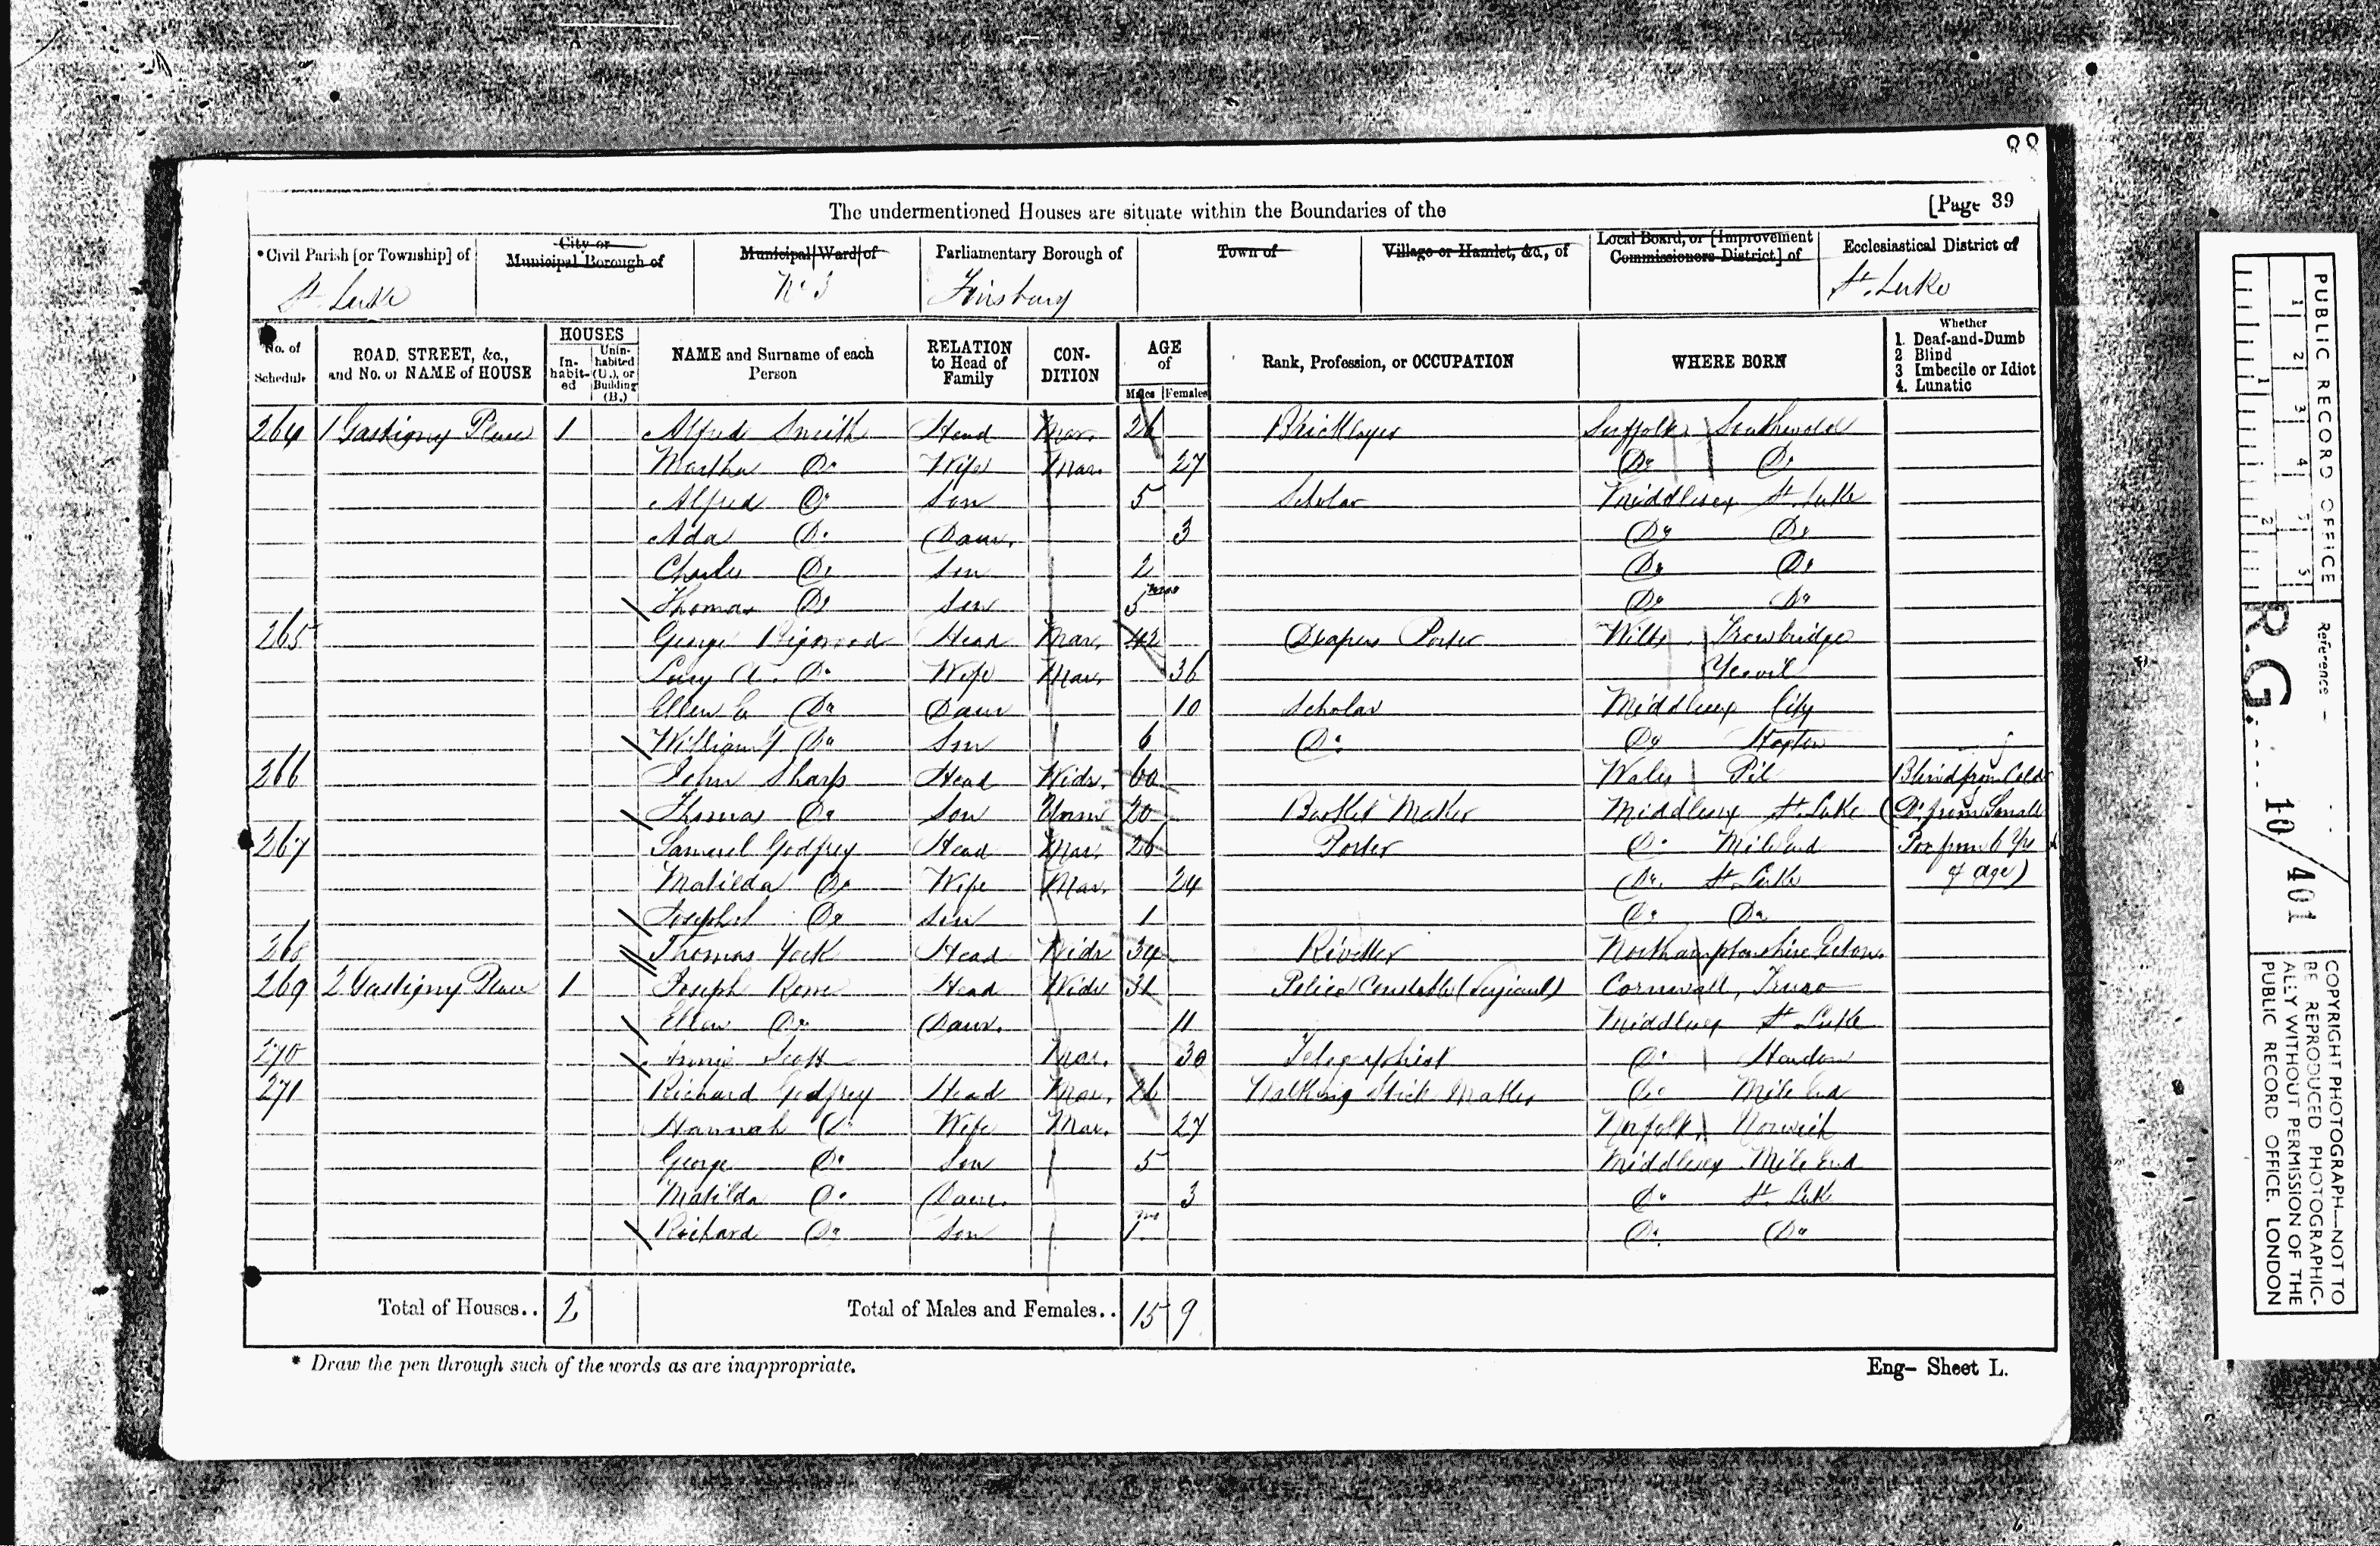 88
[Page 39
The undermentioned Houses are situate within the Boundaries of the
*Civil Parish [or Township] of City or Municipal Borough of Municipal Ward of Parliamentary Borough of Town of Village or Hamlet, &c., of Local Board, or [Improvement Commissioners District] of Ecclesiastical District of
St Luke No 3 Finsbury St. Luke
No. of Schedule ROAD, STREET, &c., and No. or NAME of HOUSE HOUSES In-habit-ed Unin-habited (U.), or Building (B.) NAME and Surname of each Person RELATION to Head of Family CON-DITION AGE of Males Females Rank, Profession, or OCCUPATION WHERE BORN Whether 1. Deaf-and-Dumb 2 Blind 3 Imbecile or Idiot 4. Lunatic
264 1 Gastigny Place 1 Alfred Smith Head Mar. 26 Bricklayer Suffolk Southwold
Martha Do Wife Mar. 27 Do Do
Alfred Do Son 5 Scholar Middlesex St. Luke
Ada Do Daur. 3 Do Do
Charles Do Son 2 Do Do
Thomas Do Son 5 mos Do Do
265 George Head Mar. 42 Drapers Porter Wilts Trowbridge
Lucy A. Do Wife Mar. 36 Yeovil
Ellen E Do Daur 10 Scholar Middlesex City
William Do Son 6 Do Do Hoxton
266 John Sharp Head Widr. 60 Wales Blind from Cold
Thomas Do Son Unm 20 Basket Maker Middlesex St. Luke (Do from Small
267 Samuel Godfrey Head Mar. 26 Porter Do Mile End Pox from 6 Yrs
Matilda Do Wife Mar. 24 Do. St. Luke of age)
Joseph Do Son 1 Do Do
268 Thomas Yock Head Widr 34 Rivetter Northamptonshire
269 2 Gastigny Place 1 Joseph Rowe Head Widr 31 Police Constable (Serjeant) Cornwall, Truro
Ellen Do Daur. 11 Middlesex St Luke
270 Annie Scott Mar. 30 Telegraphist Do Hendon
271 Richard Godfrey Head Mar. 26 Walking Stick Maker Do Mile End
Hannah Do Wife Mar. 27 Norfolk Norwich
George Do Son 5 Middlesex Mile End
Matilda Do Daur. 3 Do St. Luke
Richard Do Son 1 mo Do. Do
Total of Houses.. 2 Total of Males and Females.. 15 9
* Draw the pen through such of the words as are inappropriate.
Eng- Sheet L.
PUBLIC RECORD OFFICE
1 2 3 4 5
1 2
Reference -
R.G. 10/401
COPYRIGHT PHOTOGRAPH—NOT TO
BE REPRODUCED PHOTOGRAPHIC-
ALLY WITHOUT PERMISSION OF THE
PUBLIC RECORD OFFICE. LONDON